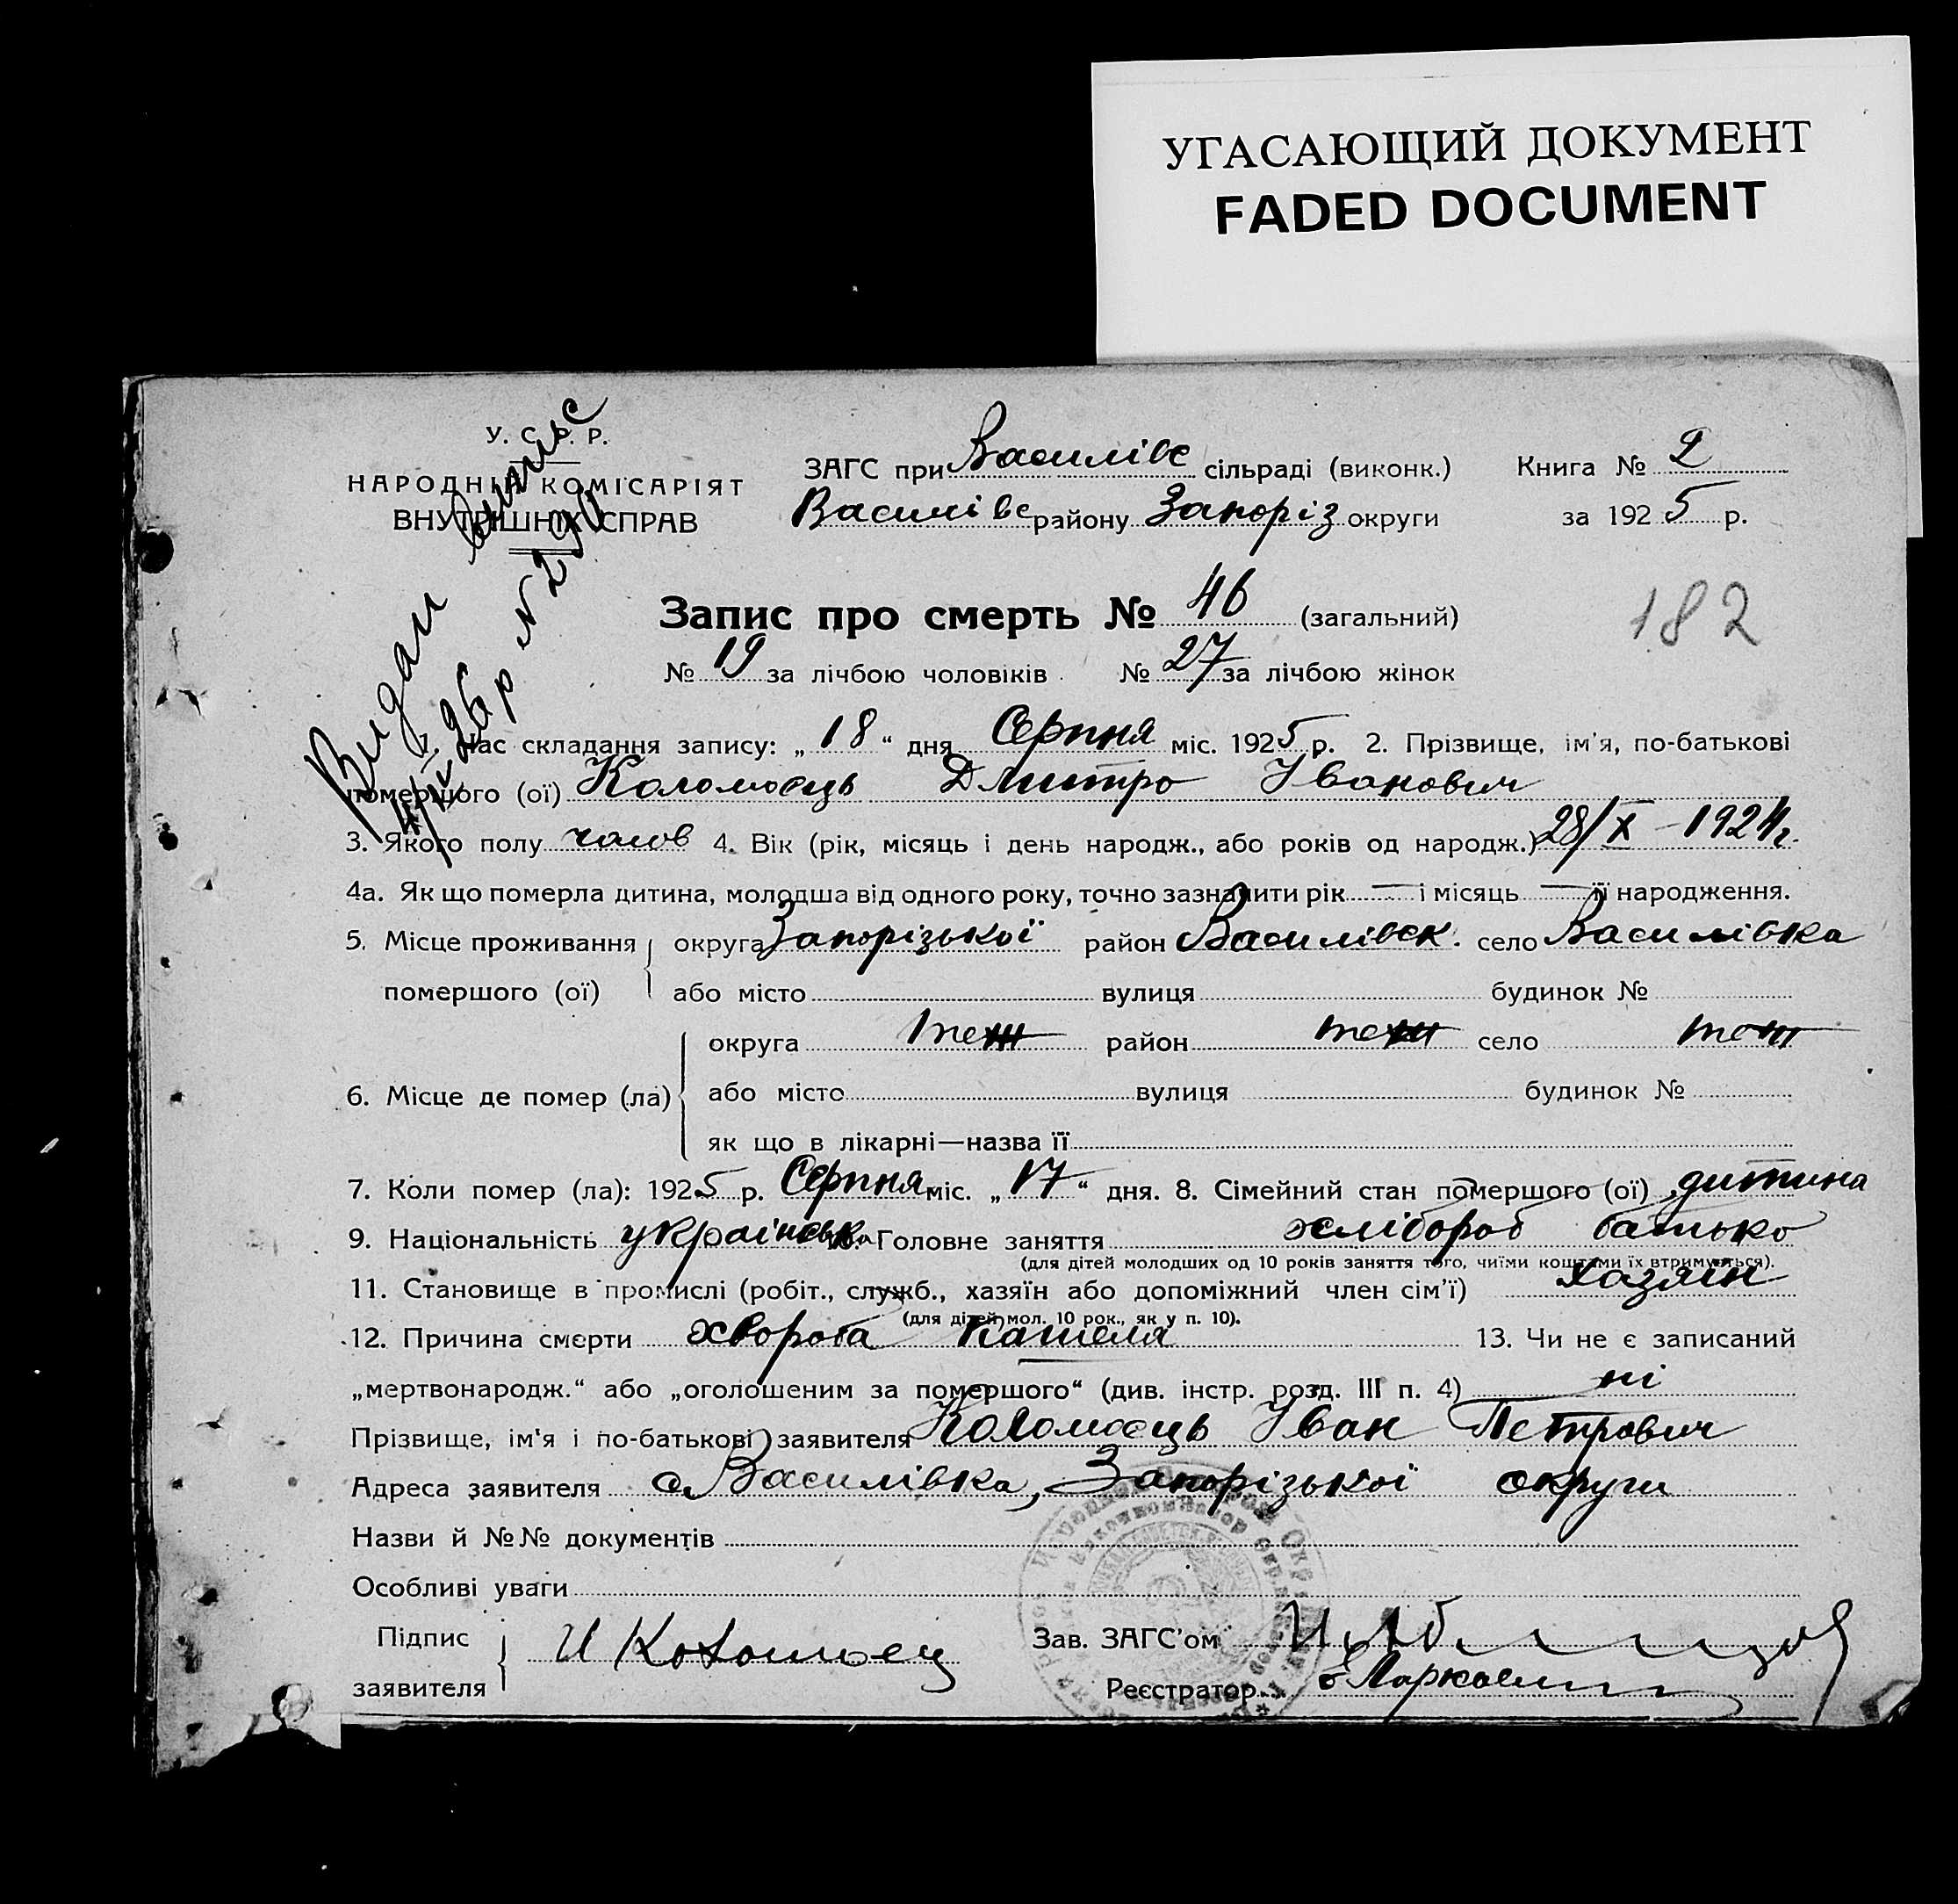 УГАСАЮЩИЙ ДОКУМЕНТ
FADED DOCUMENT
У. С. Р. Р.
НАРОДНІЙ КОМІСАРІЯТ
ВНУТРІШНІХ СПРАВ
Видан випис
4/IV 26 р N
ЗАГС при Василівс сільраді (виконк.) Книга № 2
Василівс району Запоріз округи за 1925 р.
Запис про смерть № 46 (загальний)
182
№ 19 за лічбою чоловіків № 27 за лічбою жінок
Час складання запису: „18“ дня Серпня міс. 1925 р. 2. Прізвище, ім'я, по-батькові
помершого (ої) Коломоець Дмитро Іванович
3. Якого полу чолов 4. Вік (рік, місяць і день народж., або років од народж.) 28/X – 1924 г.
4а. Як що померла дитина, молодша від одного року, точно зазначити рік — і місяць — її народження.
5. Місце проживання округа Запорізької район Василівск. село Василівка
помершого (ої) або місто вулиця будинок №
округа теж район теж село теж
6. Місце де помер (ла) або місто вулиця будинок №
як що в лікарні—назва її
7. Коли помер (ла): 1925 р. Серпня міс. „17“ дня. 8. Сімейний стан помершого (ої) дитина
9. Національність українська 10. Головне заняття хлібороб батько
(для дітей молодших од 10 років заняття того, чиїми коштами їх втримується).
11. Становище в промислі (робіт., служб., хазяїн або допоміжний член сім'ї) хазяїн
(для дітей мол. 10 рок., як у п. 10).
12. Причина смерти хвороба кашеля 13. Чи не є записаний
„мертвонародж.“ або „оголошеним за помершого“ (див. інстр. розд. III п. 4) ні
Прізвище, ім'я і по-батькові заявителя Коломоець Іван Петрович
Адреса заявителя с Василівка, Запорізької округи
Назви й №№ документів
Особливі уваги
Підпис И Коломоец Зав. ЗАГС'ом
заявителя Реєстратор